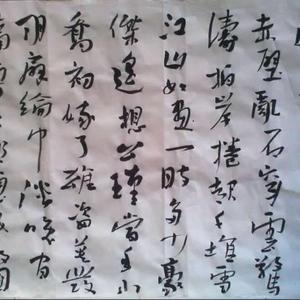 赤壁亂石穿雲驚
濤拍岸捲起千堆雪
江山如畫一時多少豪
傑遙想公瑾當年小
喬初嫁了雄姿英發
羽扇綸巾談笑間